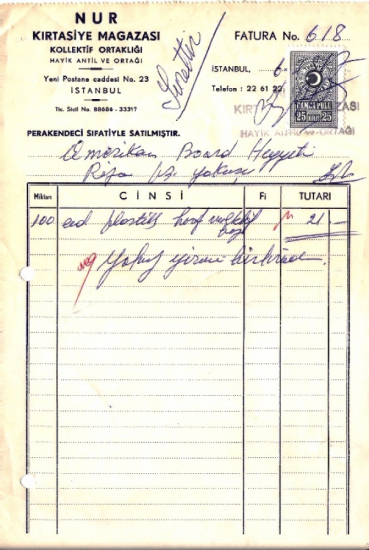 NUR
KIRTASİYE MAGAZASI
KOLLEKTİF ORTAKLIĞI
HAYİK ANTİL VE ORTAĞI
Yeni Postane caddesi No. 23
İSTANBUL
Tic. Sicil No. 88686 - 33317
Suret
FATURA No. 618
İSTANBUL, 6
Telefon : 22 61 22
DAMGA PULU
25 25
KIRTASİYE MAGAZASI
HAYİK ANTİL VE ORTAĞI
PERAKENDECİ SIFATİYLE SATILMIŞTIR.
Amerikan Board Heyyeti
Rıza
Miktarı CİNSİ Fi TUTARI
100 ad 21 -
Yalnız yirmi bir liradır.